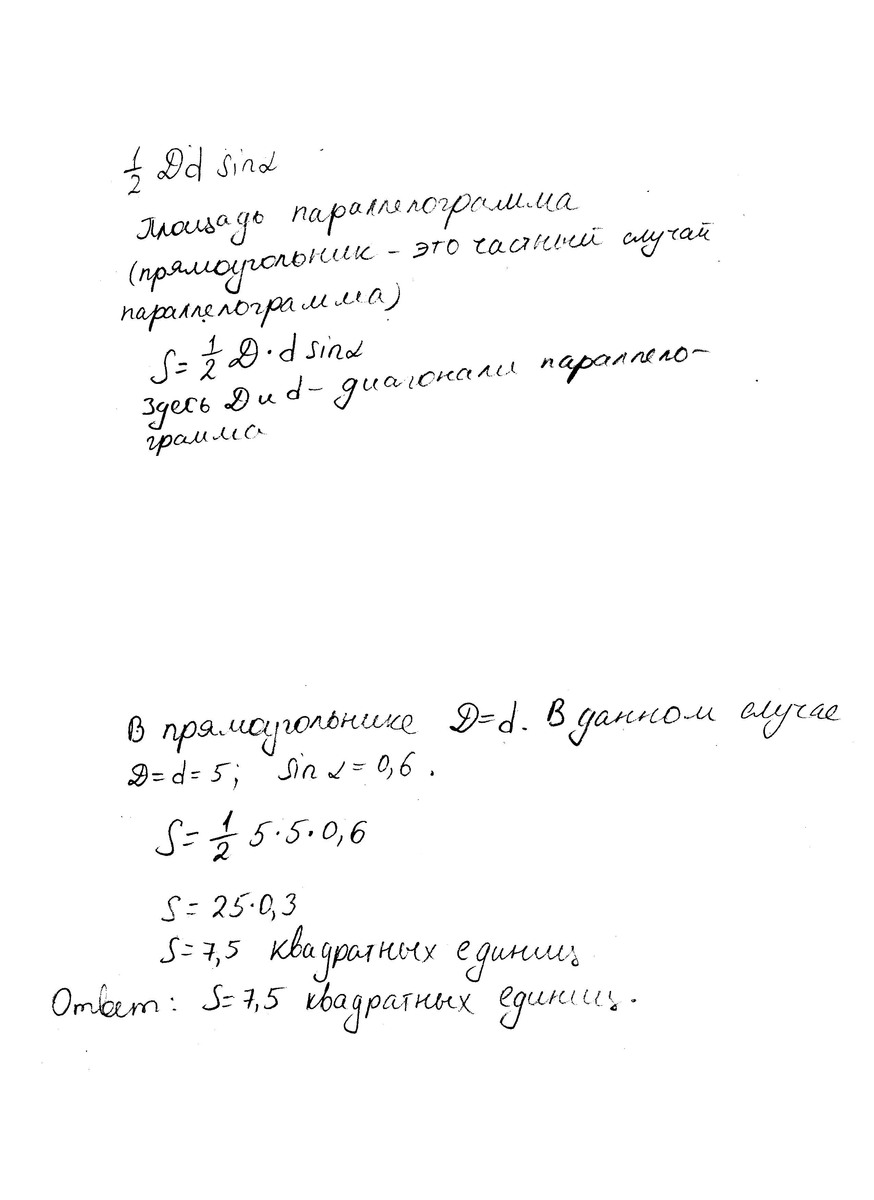 1/2 Dd sinα
Площадь параллелограмма
(прямоугольник - это частный случай
параллелограмма)
S = 1/2 D·d sinα
Здесь D и d - диагонали параллело-
грамма
В прямоугольнике D=d. В данном случае
D=d=5; sin α=0,6.
S= 1/2 5·5·0,6
S= 25·0,3
S=7,5 квадратных единиц
Ответ: S=7,5 квадратных единиц.